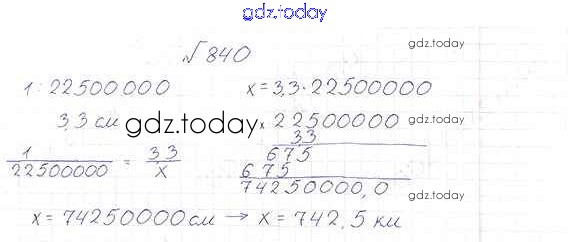 gdz.today
№840
gdz.today
1:22500000
x=3,3·22500000
3,3 см
gdz.today
x 22500000
33
gdz.today
1/22500000 = 3,3/x
675
675
74250000,0
gdz.today
x = 74250000 см → x = 742,5 км